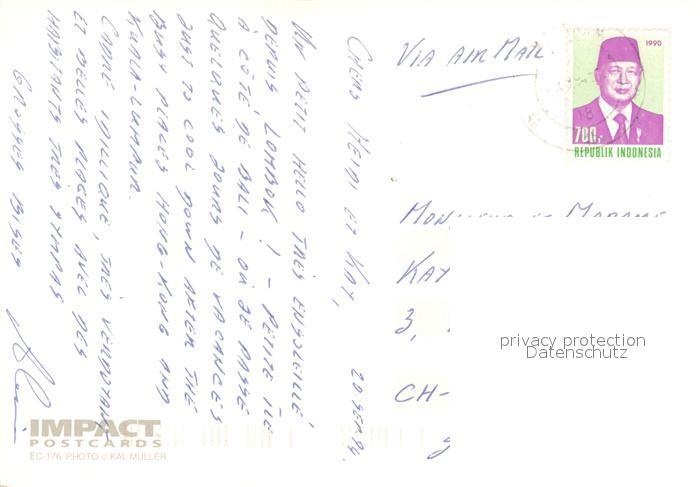 CHERS HEIDI ET KAY,
20 SEPT 94.
UN PETIT HELLO TRÈS ENSOLEILLÉ
DEPUIS LOMBOK ! - PETITE ÎLE
À CÔTÉ DE BALI - OÙ JE PASSE
QUELQUES JOURS DE VACANCES
JUST TO COOL DOWN AFTER THE
BUSY PLACES HONG-KONG AND
KUALA-LUMPUR.
CADRE IDILIQUE, TRÈS VERDOYANT
ET BELLES PLAGES AVEC DES
HABITANTS TRÈS SYMPAS
GROSSES BISES
VIA AIR MAIL
1990
700,-
REPUBLIK INDONESIA
MONSIEUR ET MADAME
KAY
3,
CH-
privacy protection
Datenschutz
IMPACT
POSTCARDS
EC-176 PHOTO © KAL MULLER